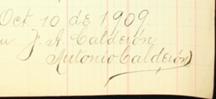 Oct 10 de 1909.
J. A. Calderón
Antonio Calderón